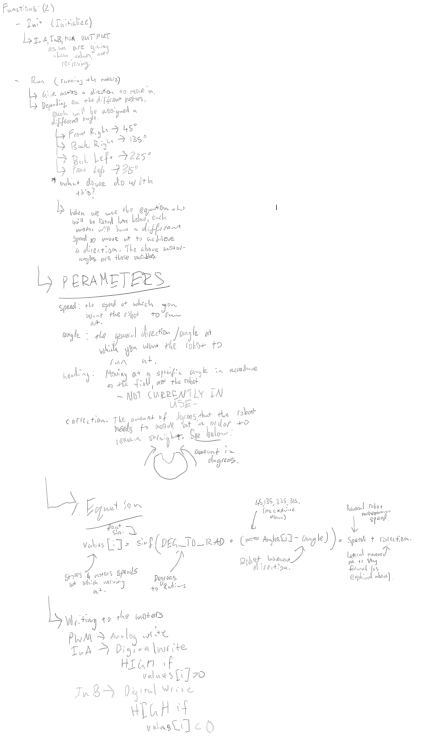 Functions (2)
- Init (Initialize)
↳ InA, InB, PWM OUTPUT
as we are giving
them values, not
receiving
- Run (running the motors)
↳ Give motors a direction to move in
↳ Depending on the different motors,
each will be assigned a
different angle.
↳ Front Right → 45°
↳ Back Right → 135°
↳ Back Left → 225°
↳ Front Left → 315°
* what do we do with
this?
↳ When we use the equation
will be listed below, each
motor will have a different
speed to move at to achieve
a direction. The above motor
angles are these variables
↳ PERAMETERS
speed: the speed at which you
want the robot to run
at.
angle: the general direction/angle at
which you want the robot to
run at.
heading: Moving at a specific angle in accordance
to the field, not the robot
- NOT CURRENTLY IN
USE -
correction: The amount of degrees that the robot
needs to rotate at in order to
remain straight. See below:
amount in
degrees.
↳ Equation
45, 135, 225, 315.
values[i] = sinf(DEG_TO_RAD * (motorAngles[i] - angle)) * speed + correction.
Stores motors speeds
at which moving
at.
Degrees
to Radians
Robot
direction.
speed
↳ Writing to the motors
PWM → Analog write
InA → Digital Write
HIGH if
values[i] > 0
InB → Digital Write
HIGH if
values[i] < 0